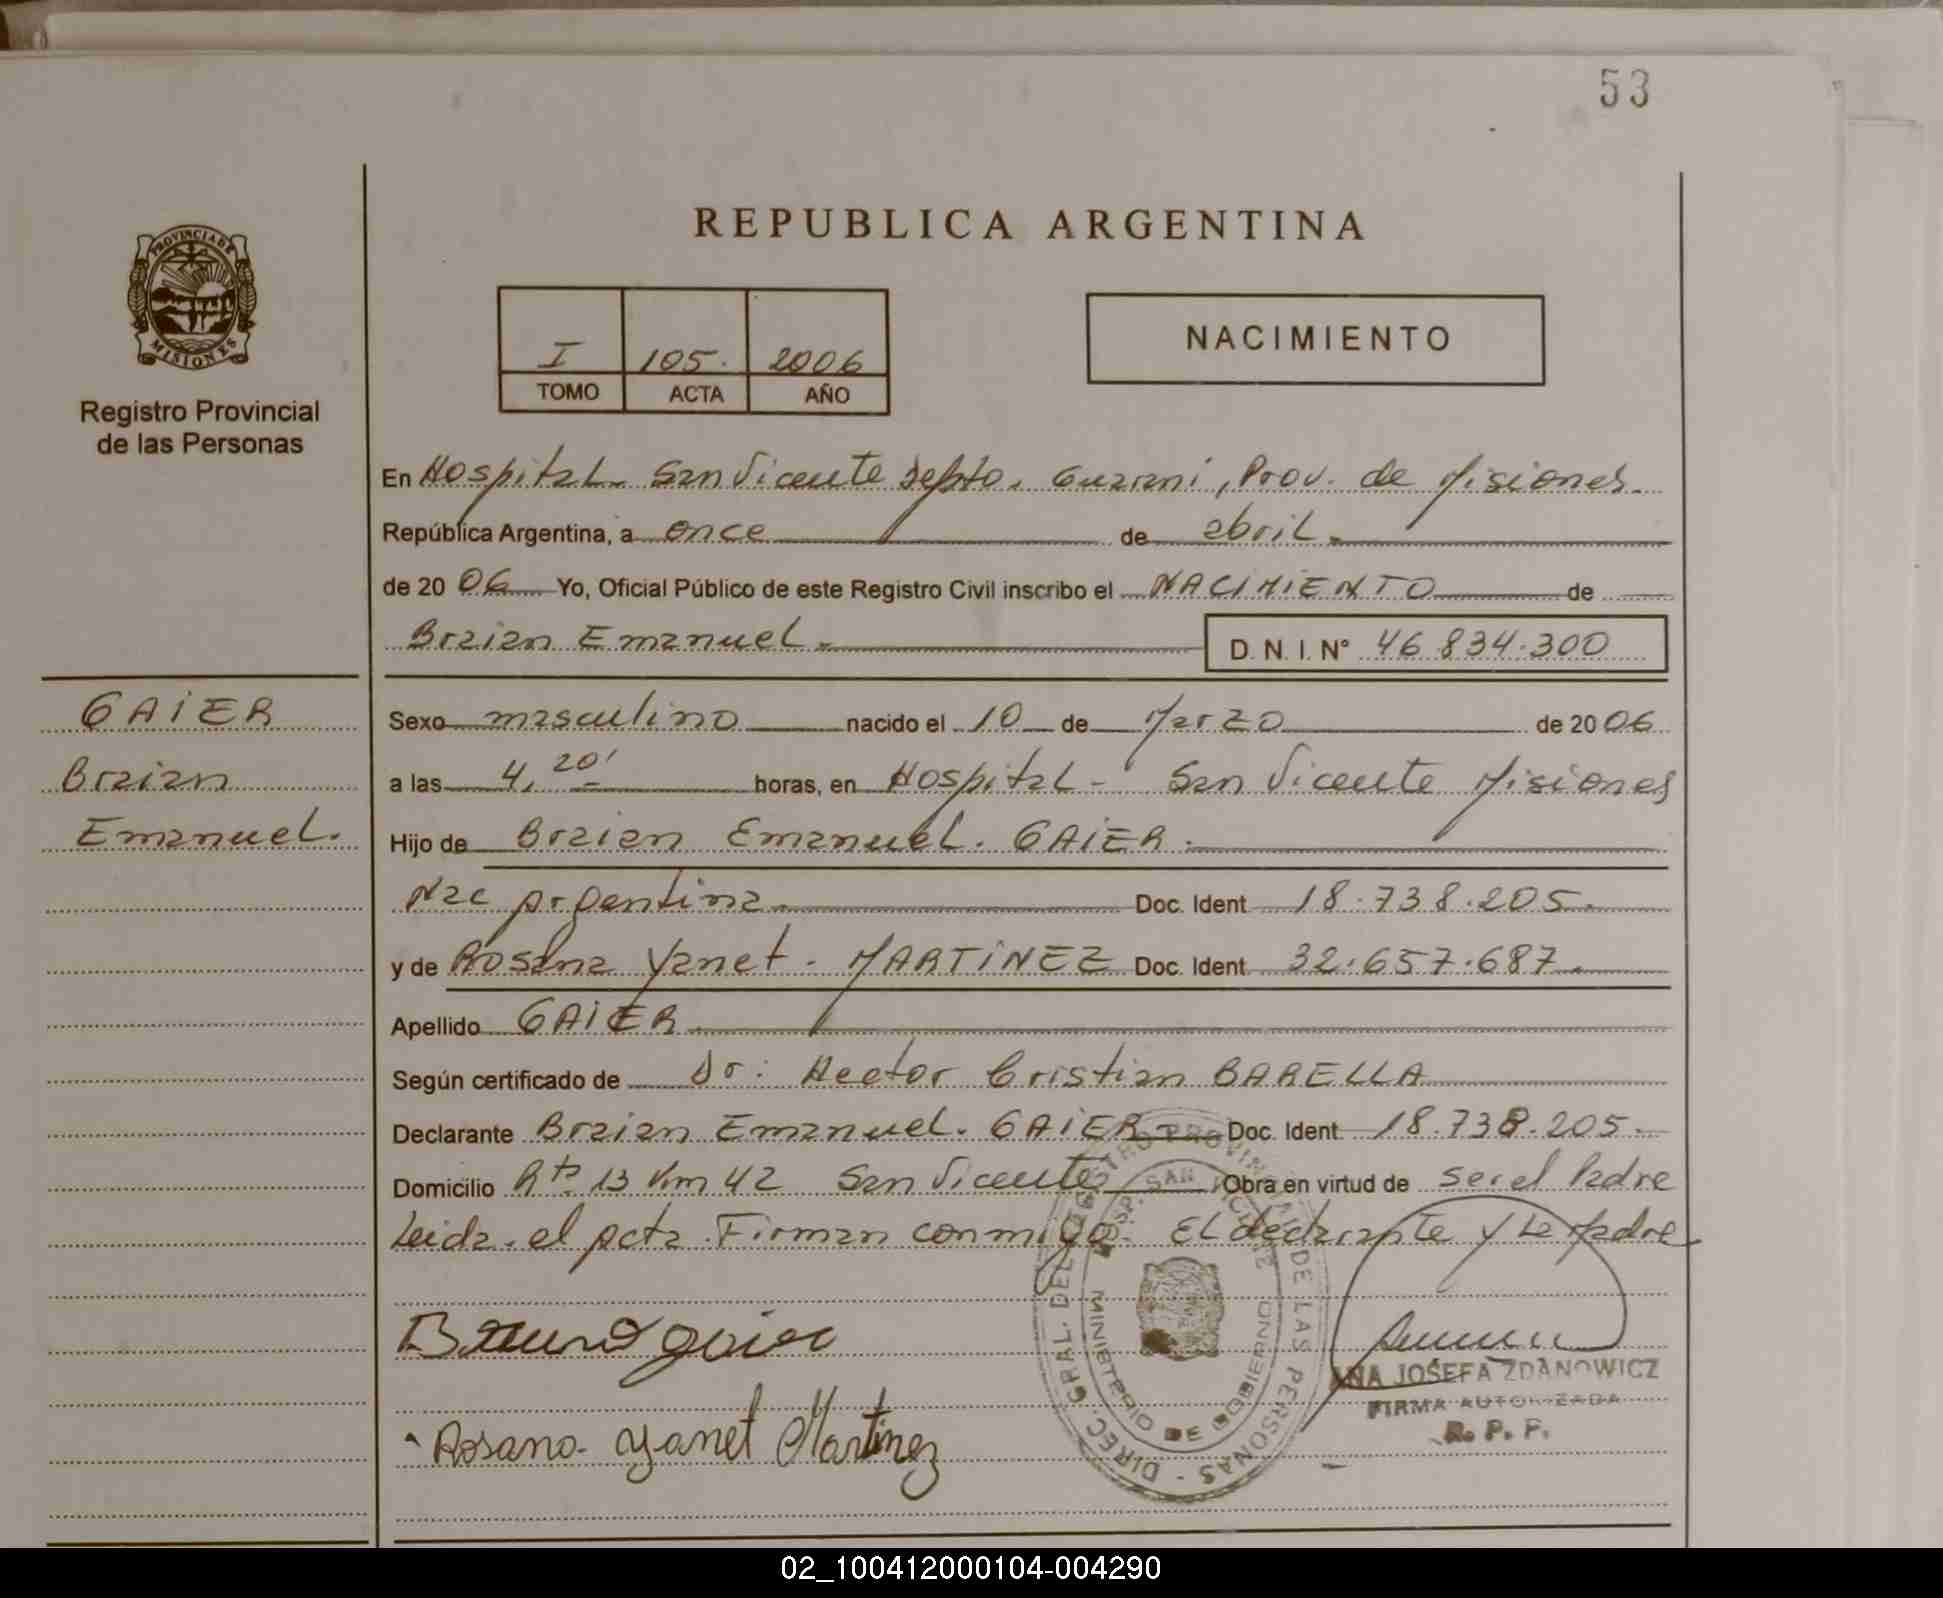 53
REPUBLICA ARGENTINA
PROVINCIA DE MISIONES
Registro Provincial
de las Personas
I 105. 2006
TOMO ACTA AÑO
NACIMIENTO
En Hospital - San Vicente Depto. Guarani, Prov. de Misiones.
República Argentina, a once de abril.
de 20 06 Yo, Oficial Público de este Registro Civil inscribo el NACIMIENTO de
Braian Emanuel. D. N. I. Nº 46.834.300
GAIER
Braian
Emanuel.
Sexo masculino nacido el 10 de Marzo de 20 06
a las 4, 20' horas, en Hospital - San Vicente Misiones
Hijo de Braian Emanuel. GAIER.
Nac Argentina. Doc. Ident 18.738.205.
y de Rosana Yanet. MARTINEZ Doc. Ident 32.657.687.
Apellido GAIER
Según certificado de Dr: Hector Cristian BARELLA
Declarante Braian Emanuel. GAIER Doc. Ident. 18.738.205.
Domicilio Rta 13 Km 42 San Vicente Obra en virtud de ser el Padre
Leida el acta Firman conmigo. El declarante y La Madre
DIREC. GRAL. DEL REGISTRO PROVINCIAL DE LAS PERSONAS -
HOSP. SAN VICENTE
MINISTERIO DE GOBIERNO
gaier
Rosana Yanet Martinez
ANA JOSEFA ZDANOWICZ
FIRMA AUTORIZADA
R. P. P.
02_100412000104-004290